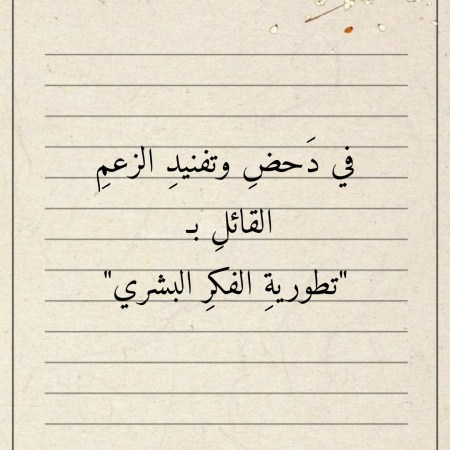 في دَحضِ وتفنيدِ الزعمِ
القائلِ بـ
"تطوريةِ الفكرِ البشري"